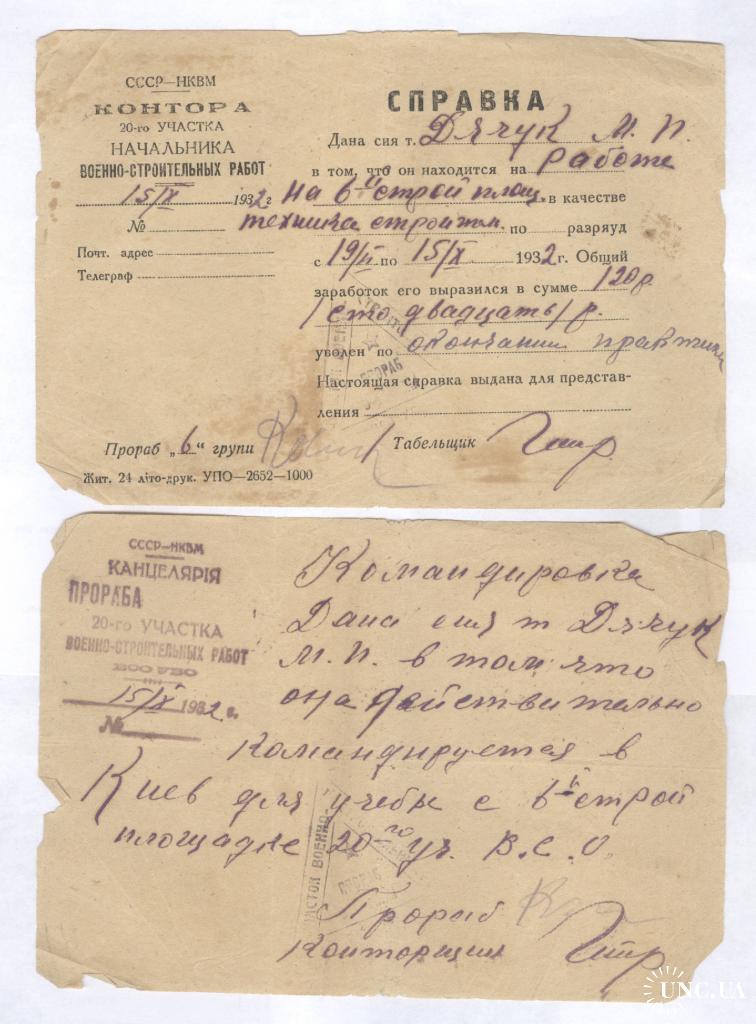 СССР—НКВМ
КОНТОРА
20-го УЧАСТКА
НАЧАЛЬНИКА
ВОЕННО-СТРОИТЕЛЬНЫХ РАБОТ
15/IX 1932 г
№
Почт. адрес
Телеграф
СПРАВКА
Дана сия т. Дячук М. П.
в том, что он находится на работе
на 6й строй площ. в качестве
техника строит. по разряуд
с 19/II по 15/IX 1932 г. Общий
заработок его выразился в сумме 120 р.
/сто двадцать/ р.
уволен по окончании практики
Настоящая справка выдана для представ-
ления
Прораб „6" групи
Табельщик
Жит. 24 літо-друк. УПО—2652—1000
СССР—НКВМ
КАНЦЕЛЯРІЯ
ПРОРАБА
20-го УЧАСТКА
ВОЕННО-СТРОИТЕЛЬНЫХ РАБОТ
ВСО УВО
15/IX 1932 г.
№
Командировка
Дана сия т Дячук
М. П. в том что
она действительно
командируется в
Киев для учебы с 6й строй
площадке 20-го уч. В.С.О.
Прораб
Конторщик
ПРОРАБ
УЧАСТОК ВОЕННО-
ПРОРАБ
UNC.UA